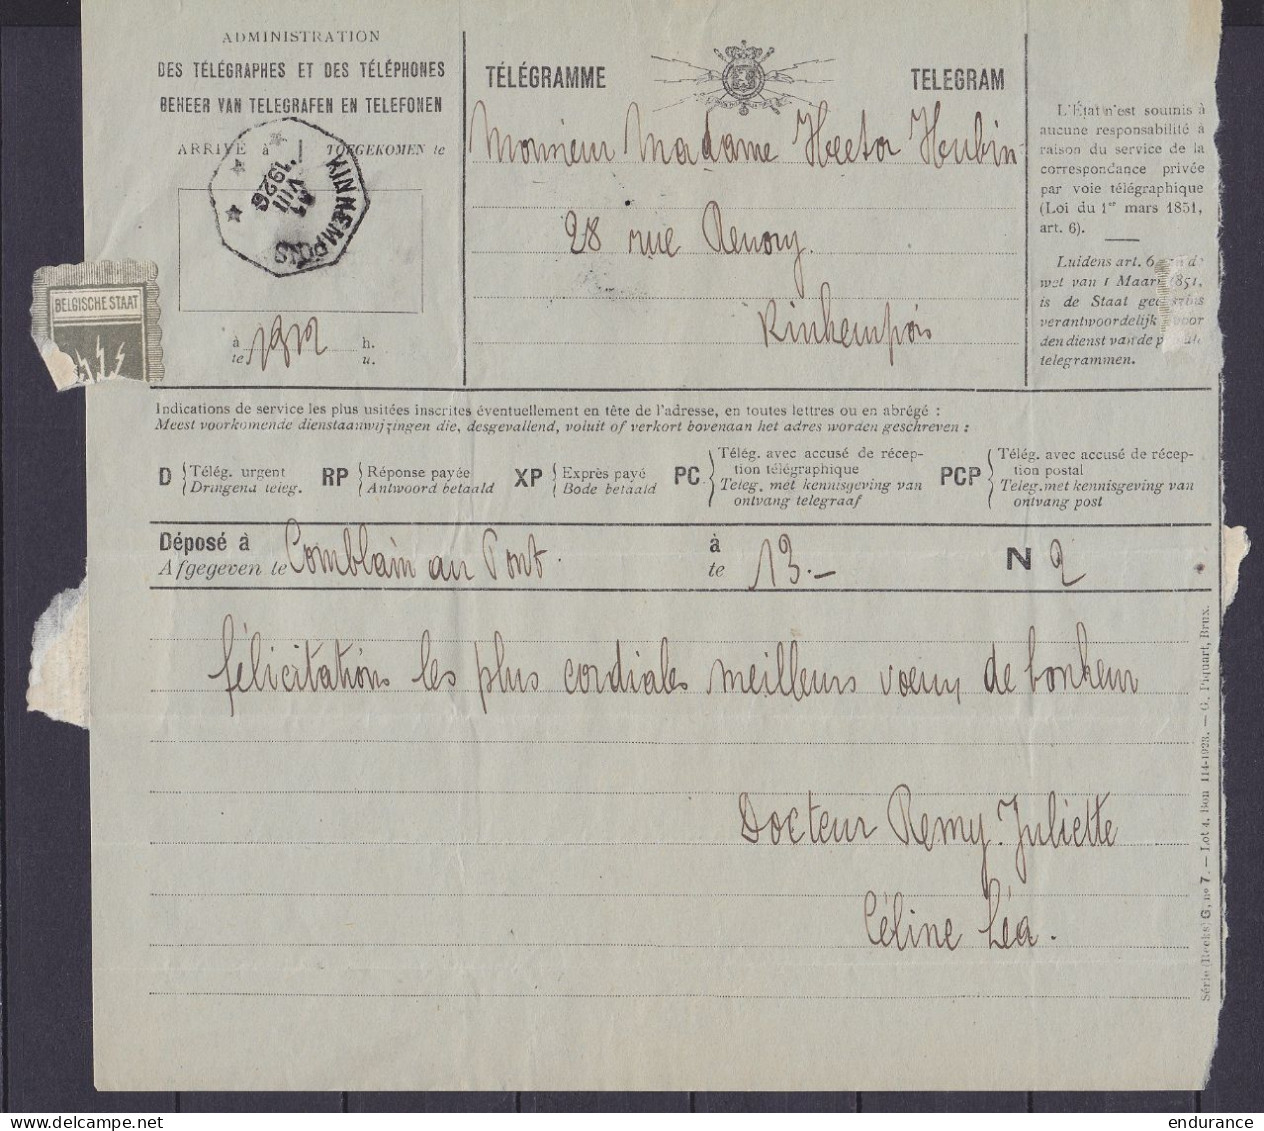 ADMINISTRATION
DES TÉLÉGRAPHES ET DES TÉLÉPHONES
BEHEER VAN TELEGRAFEN EN TELEFONEN
ARRIVÉ à TOEGEKOMEN te
KINKEMPOIS
VIII
1926
BELGISCHE STAAT
à
te
h.
u.
TÉLÉGRAMME TELEGRAM
Monsieur Madame Hector Houbin
28 rue Renory.
Kinkempois
L'État n'est soumis à
aucune responsabilité à
raison du service de la
correspondance privée
par voie télégraphique
(Loi du 1er mars 1851,
art. 6).
Luidens art. 6 de
wet van 1 Maart 1851,
is de Staat
verantwoordelijk voor
den dienst van de
telegrammen.
Indications de service les plus usitées inscrites éventuellement en tête de l'adresse, en toutes lettres ou en abrégé :
Meest voorkomende dienstaanwijzingen die, desgevallend, voluit of verkort bovenaan het adres worden geschreven :
D Télég. urgent
Dringend teleg.
RP Réponse payée
Antwoord betaald
XP Exprès payé
Bode betaald
PC Télég. avec accusé de récep-
tion télégraphique
Teleg. met kennisgeving van
ontvang telegraaf
PCP Télég. avec accusé de récep-
tion postal
Teleg. met kennisgeving van
ontvang post
Déposé à
Afgegeven te Comblain au Pont. à
te 13.- N 2
félicitations les plus cordiales meilleurs voeux de bonheur
Docteur Remy. Juliette
Céline Léa.
Série (Reeks) G, no 7. — Lot 4, Bon 114-1923. — G. Piquart, Brux.
endurance